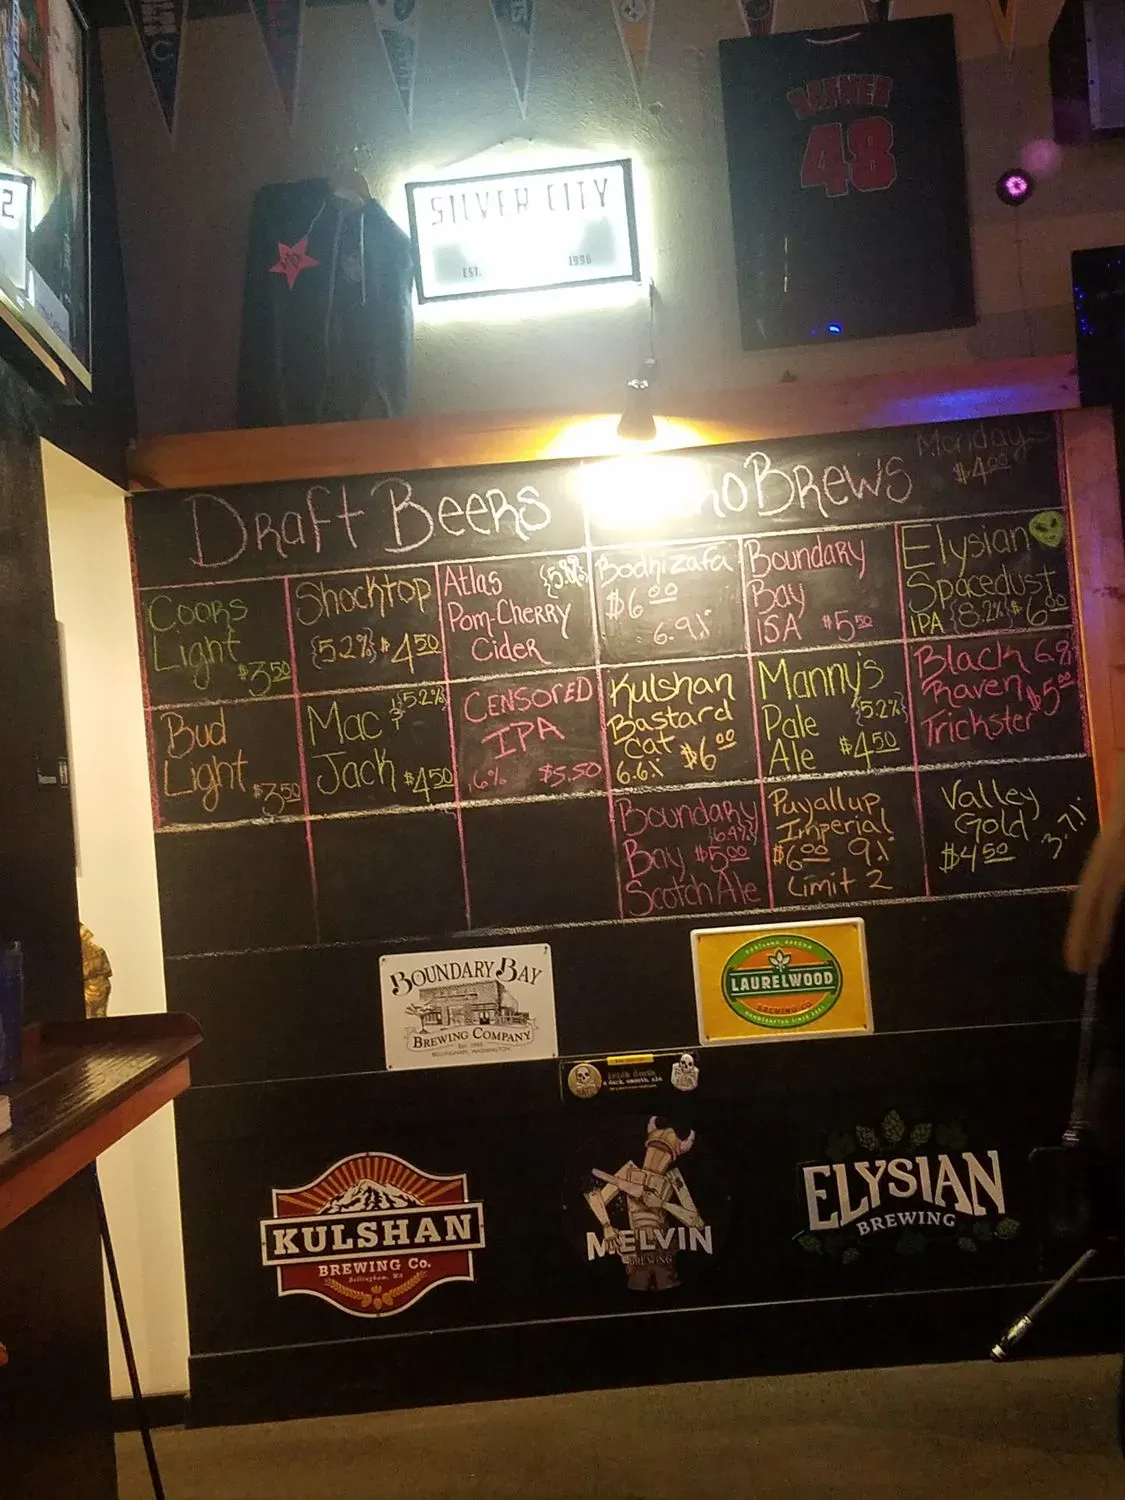 48
SILVER CITY
EST.
1996
2
Mondays
$4.00
Draft Beers
Brews
Coors
Light
$3.50
Shocktop
{5.2%} $4.50
Atlas
Pom-Cherry
Cider
Bodhizafa
$6.00
6.9%
Boundary
Bay
ISA $5.50
Elysian
Spacedust
IPA {8.2%} $6.00
Bud
Light
$3.50
Mac
{5.2%}
Jack $4.50
CENSORED
IPA
6% $5.50
Kulshan
Bastard
Cat $6.00
6.6%
Manny's
Pale {5.2%}
Ale $4.50
Black 6.9%
Raven $5.00
Trickster
Boundary
{6.4%}
Bay $5.00
Scotch Ale
Puyallup
Imperial
$6.00 9%
Limit 2
Valley
Gold 3.7%
$4.50
BOUNDARY BAY
BREWING COMPANY
BELLINGHAM, WASHINGTON
PORTLAND, OREGON
LAURELWOOD
BREWING CO.
HANDCRAFTED SINCE 2001
irish death
a dark, smooth, ale
KULSHAN
BREWING Co.
Bellingham, WA
MELVIN
BREWING
ELYSIAN
BREWING